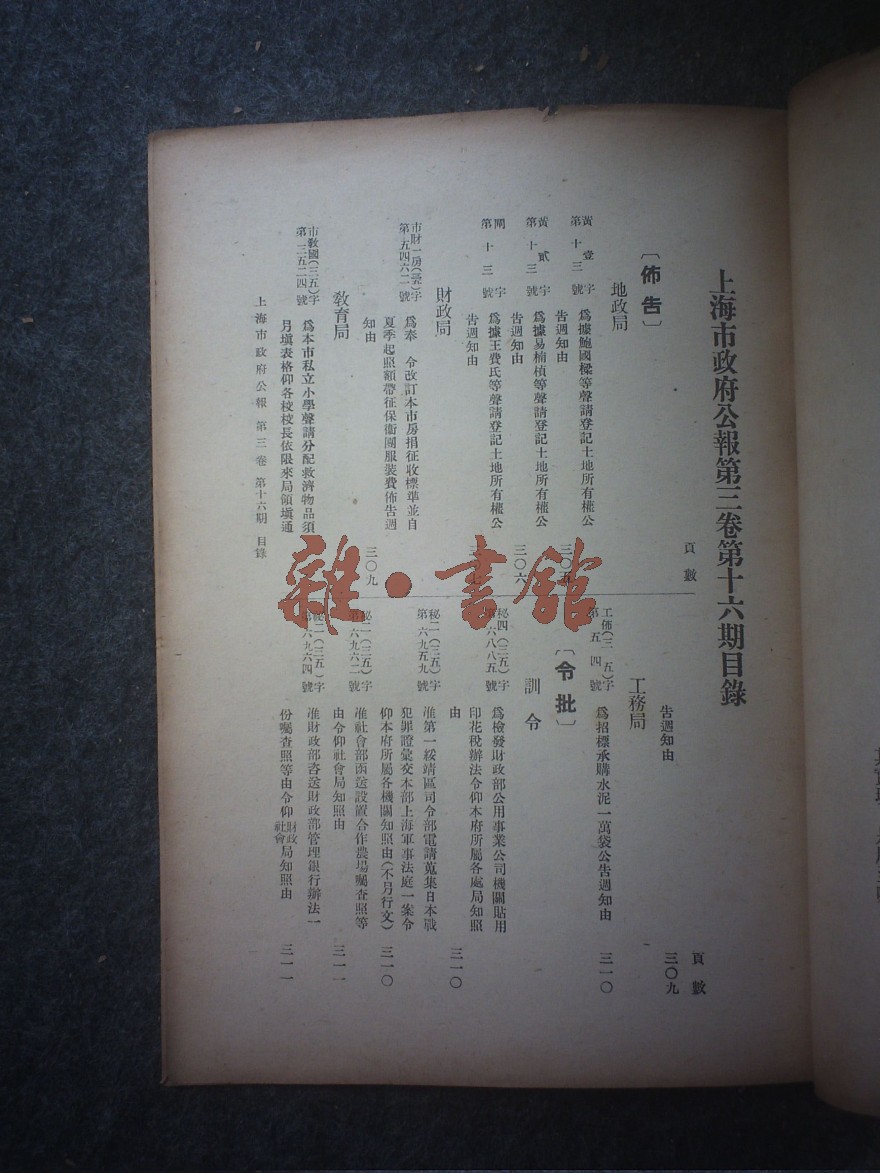 上海市政府公報第三卷第十六期目錄
頁數
〔佈告〕
地政局
黃壹字
第十三號
爲據鮑國樑等聲請登記土地所有權公
告週知由
三〇五
黃貳字
第十三號
爲據易楠楨等聲請登記土地所有權公
告週知由
三〇六
閘字
第十三號
爲據王費氏等聲請登記土地所有權公
告週知由
財政局
市財一房(卅五)字
第五四六二號
爲奉 令改訂本市房捐征收標準並自
夏季起照額帶征保衞團服裝費佈告週
知由
三〇九
教育局
市教國(三五)字
第三五二四號
爲本市私立小學聲請分配救濟物品須
另填表格仰各校校長依限來局領填通
上海市政府公報 第三卷 第十六期 目錄
頁數
告週知由
三〇九
工務局
工佈(三五)字
第五四號
爲招標承購水泥一萬袋公告週知由
三一〇
〔令批〕
訓令
秘四(三五)字
第六八八五號
爲檢發財政部公用事業公司機關貼用
印花稅辦法令仰本府所屬各處局知照
由
三一〇
秘二(三五)字
第六九五九號
准第一綏靖區司令部電請蒐集日本戰
犯罪證彙交本部上海軍事法庭一案令
仰本府所屬各機關知照由(不另行文)
三一〇
秘二(三五)字
第六九六二號
准社會部函送設置合作農場囑查照等
由令仰社會局知照由
三一一
秘二(三五)字
第六九六四號
准財政部咨送財政部管理銀行辦法一
份囑查照等由令仰財政社會局知照由
三一一
雜·書館